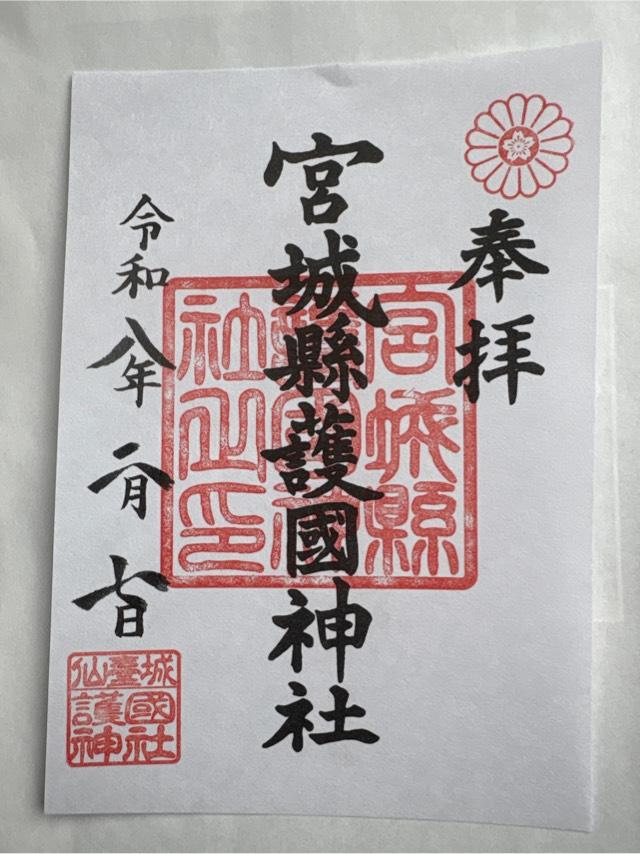 奉拝
宮城縣護國神社
宮城縣
護國神
社之印
令和八年二月七日
仙臺城
護國
神社